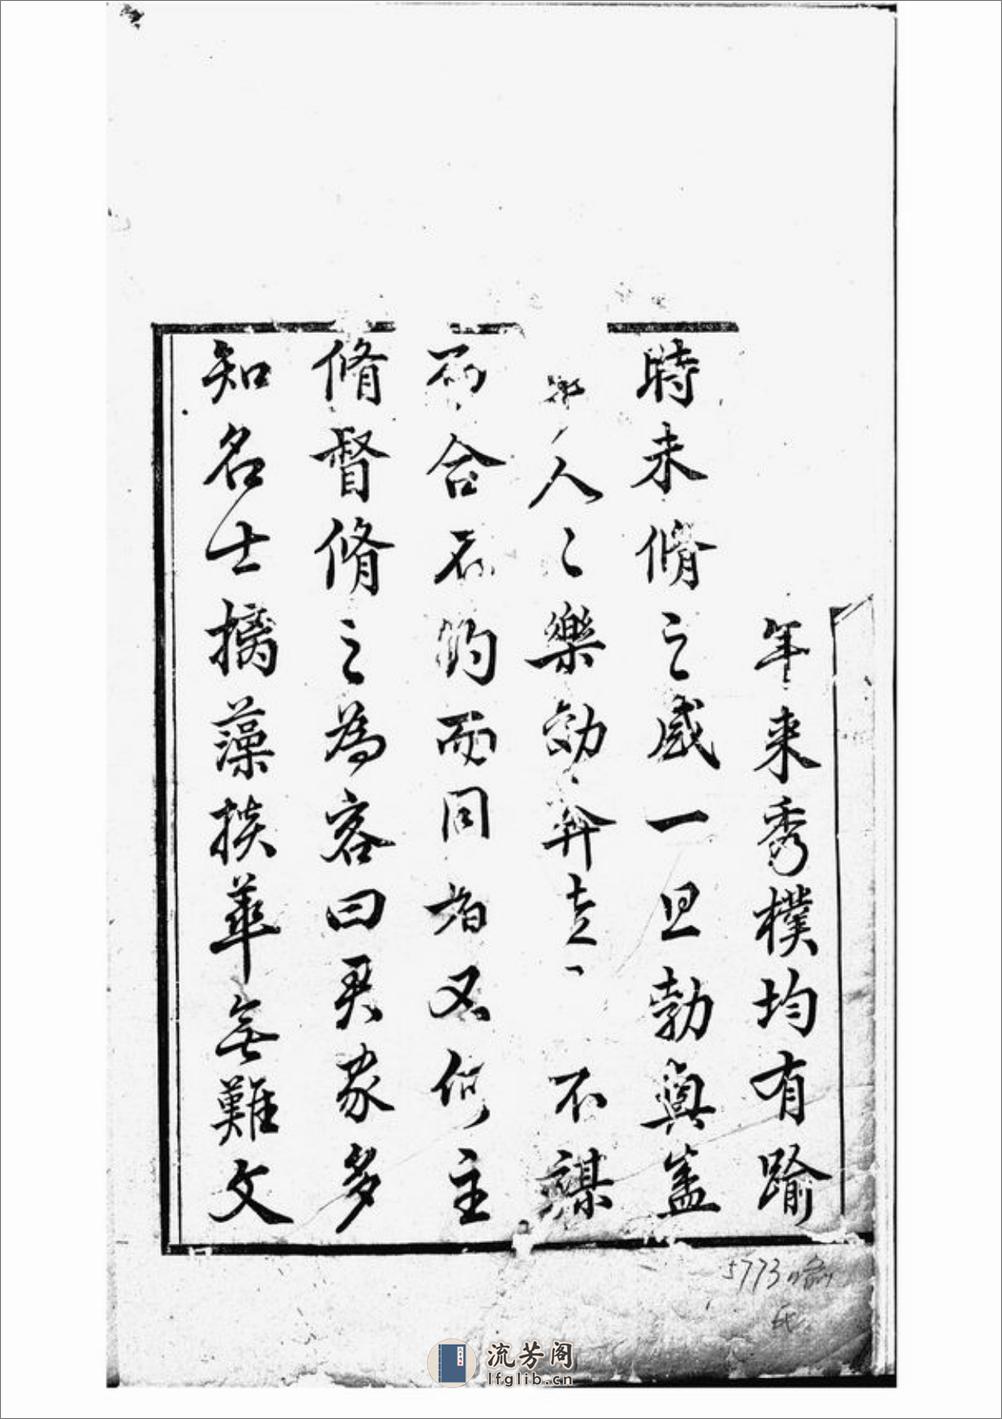 年来秀樸均有踰
時未脩之感一旦勃興蓋
人々樂効奔走不謀
而合不約而同者又何主
脩督脩之為客曰吾家多
知名士摛藻掞華無難文
5773
流芳阁
lfglib.cn